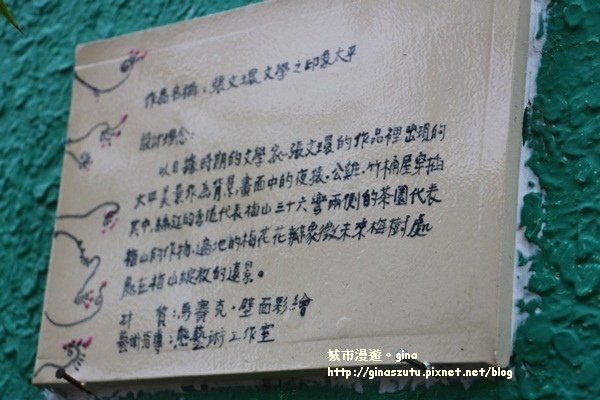 作品名稱:張文環文學之印象太平
設計理念:
以日據時期的文學家-張文環的作品裡出現的
太平美景作為背景,畫面中的夜猿、公雞、竹桶屋穿插
其中,綿延的香道代表梅山三十六彎兩側的茶園代表
梅山的作物,遍地的梅花花瓣象徵未來梅樹處
處在梅山綻放的遠景。
材 質:馬賽克、壁面彩繪
藝術指導:藝術工作室
城市漫遊。gina
http://ginaszutu.pixnet.net/blog